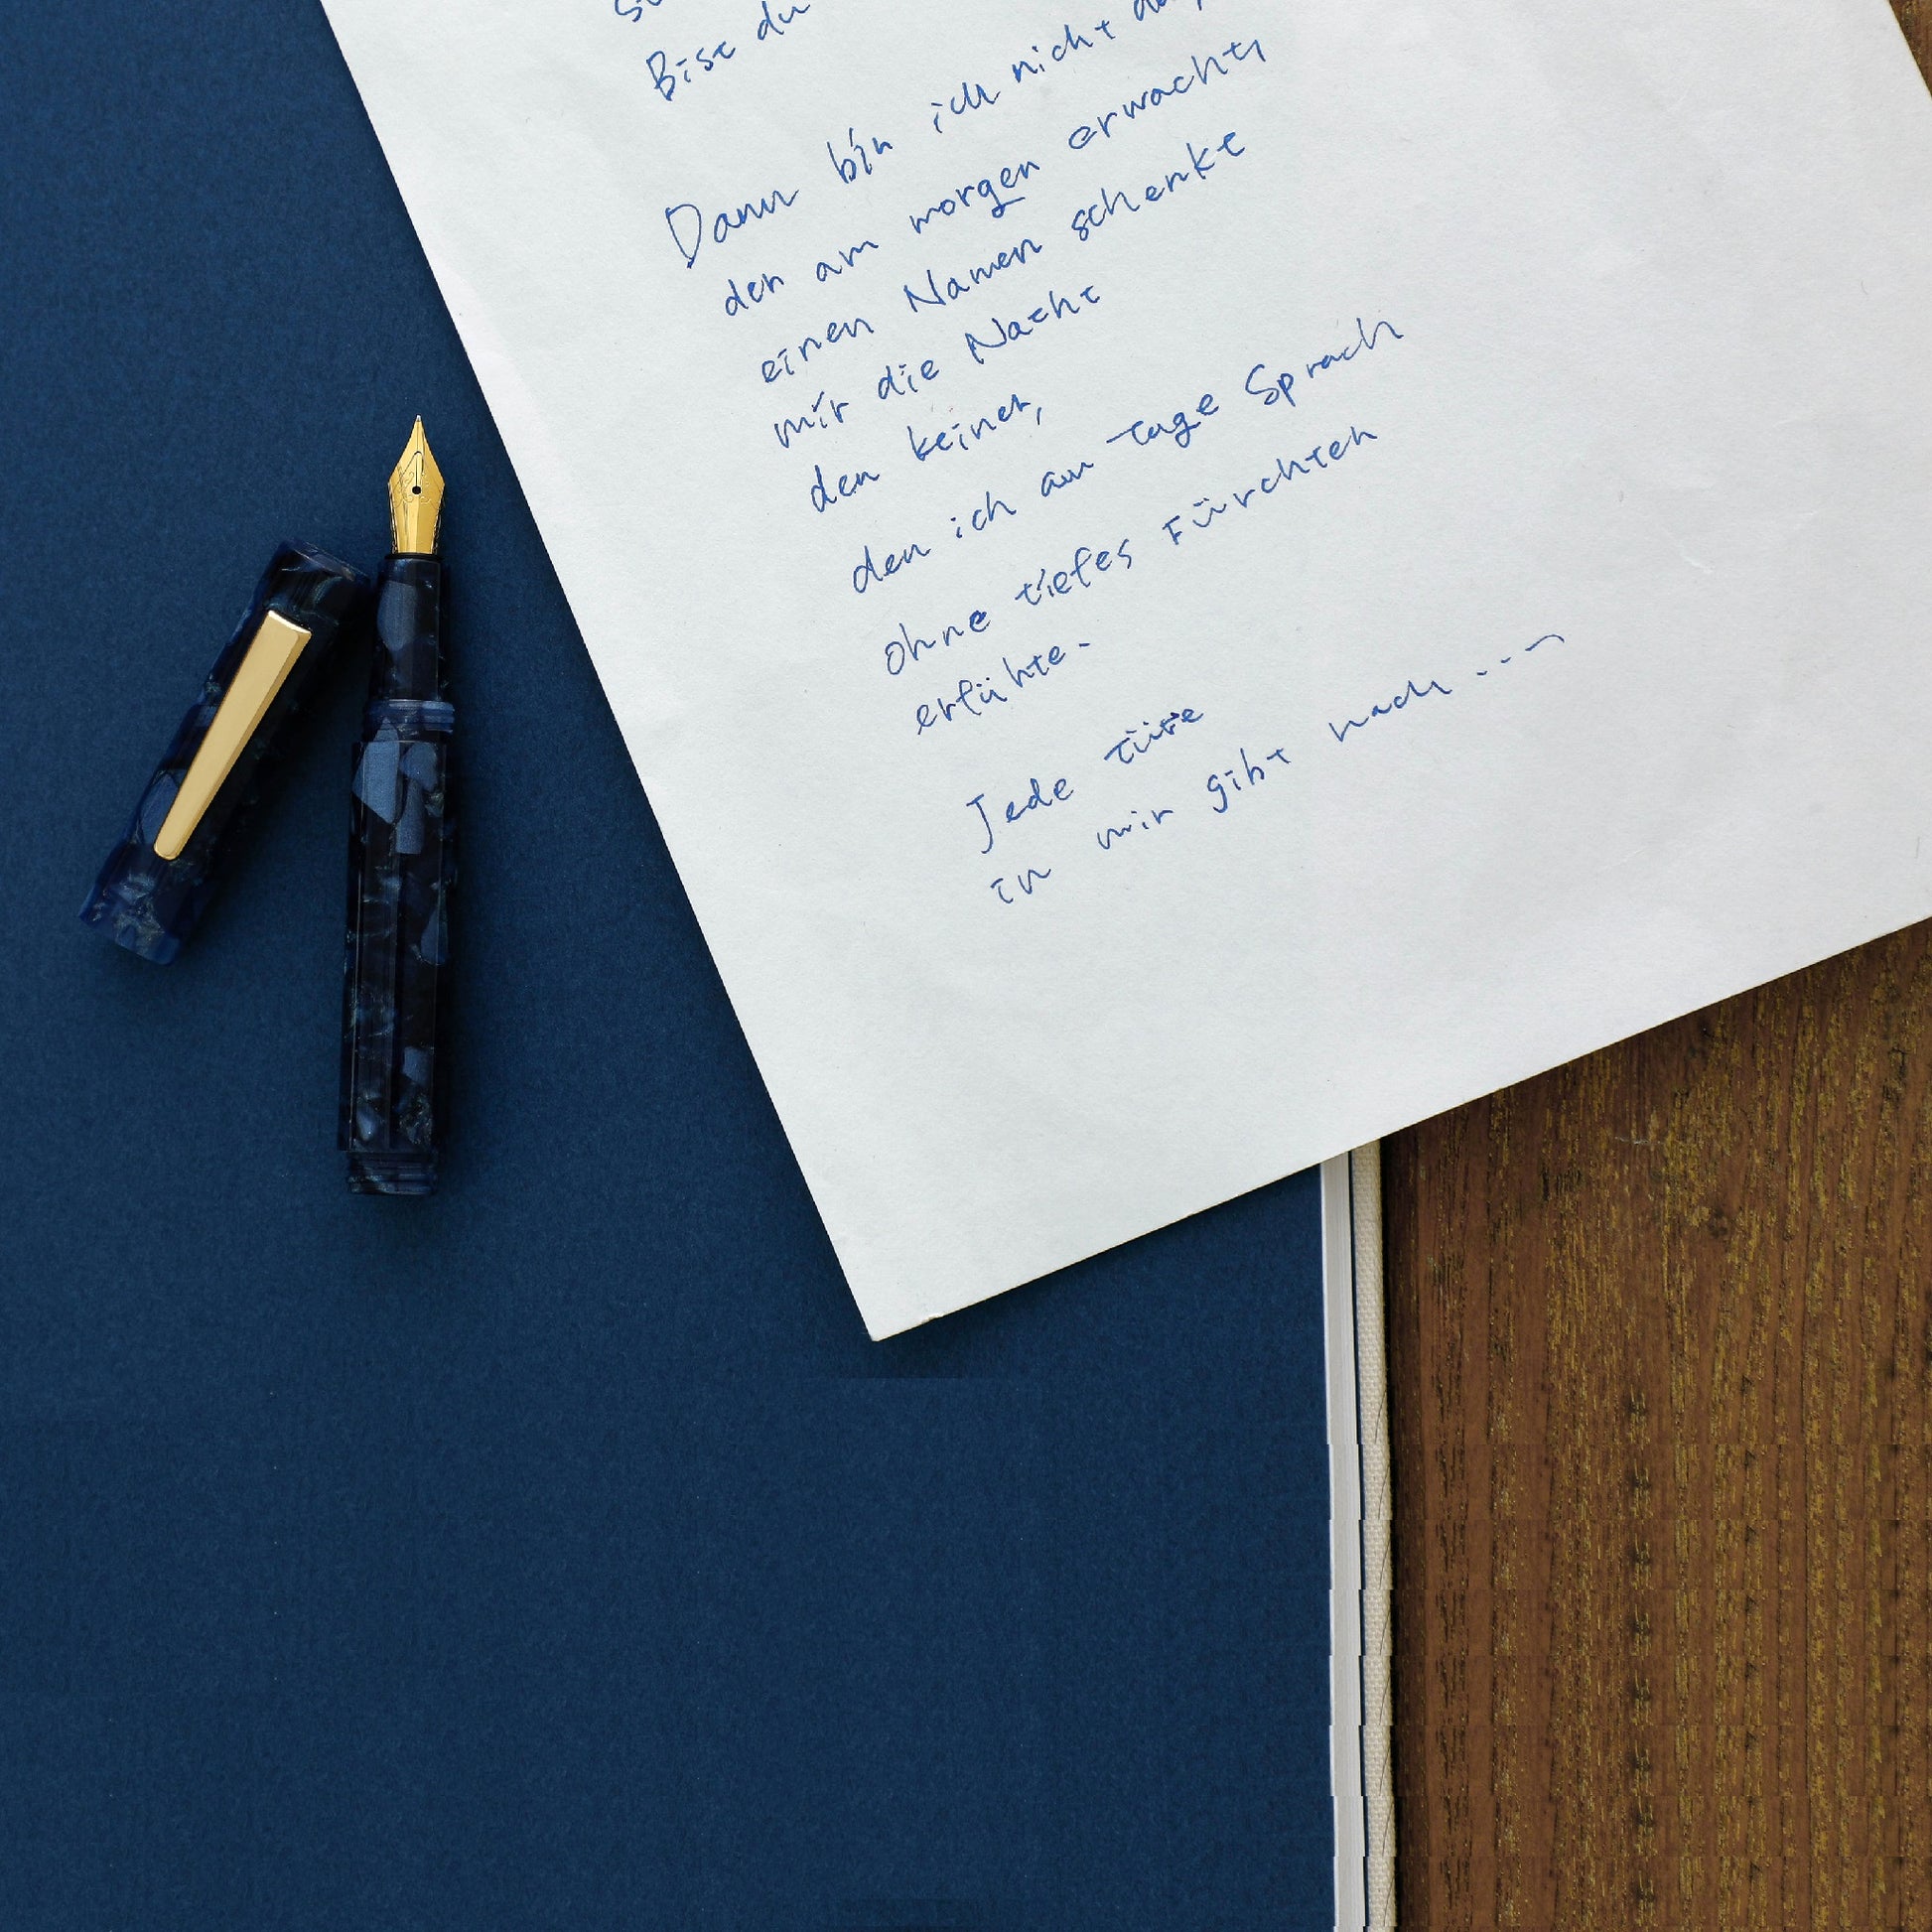 Bist du
Dann bin ich nicht
den am morgen erwacht,
einen Namen schenkt
mir die Nacht
den keiner,
den ich am tage Sprach
ohne tiefes Fürchten
erführte.
Jede türe
in mir gibt nach...